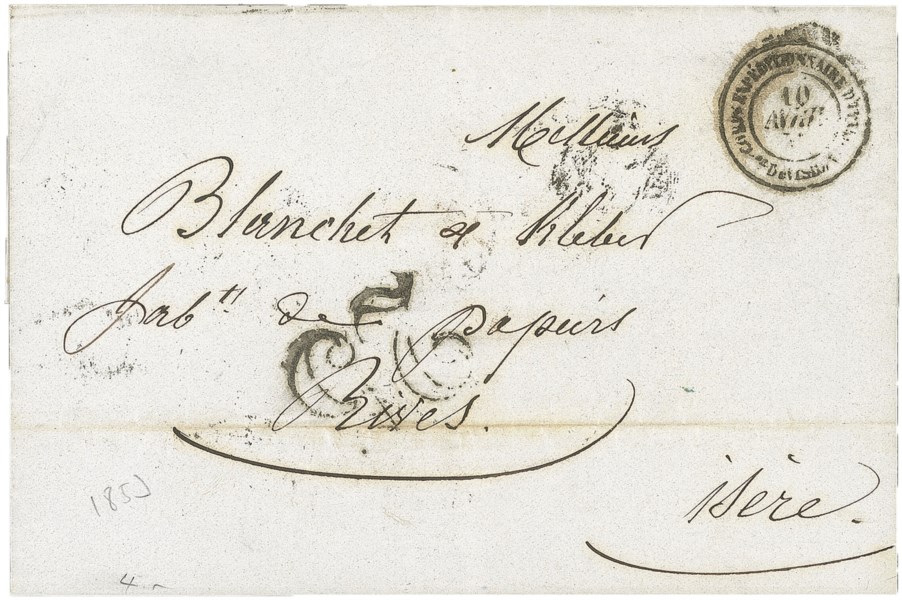 CORPS EXPÉDITIONNAIRE D'ITALIE
10
AVRIL
Messieurs
Blanchet & Kleber
Fabts de papiers
Rives.
isère.
185
4